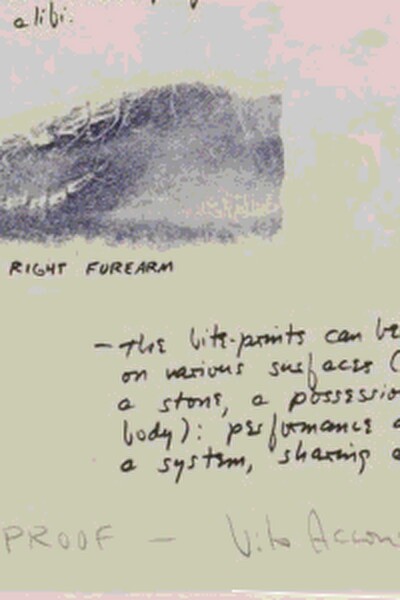 alibi.
RIGHT FOREARM
— The bite-prints can be
on various surfaces (
a stone, a possessio
body): performance a
a system, sharing
PROOF — Vito Accon